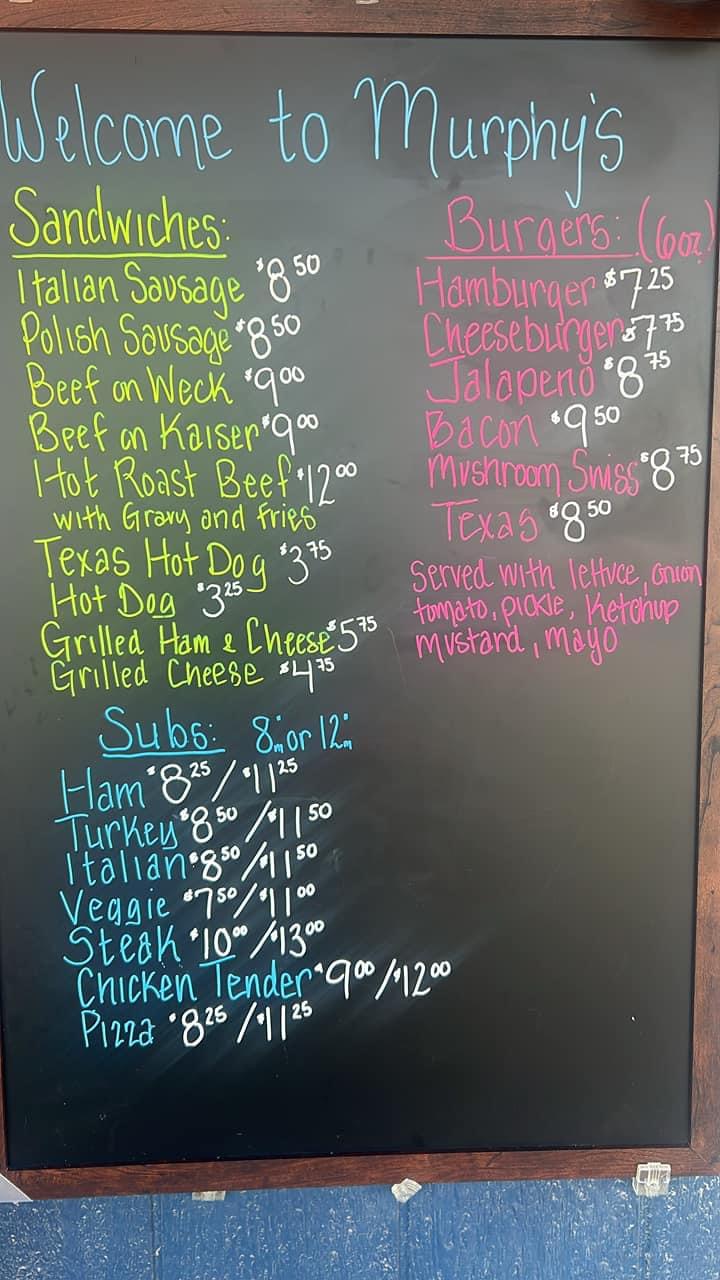 Welcome to Murphy's
Sandwiches:
Italian Sausage $8.50
Polish Sausage $8.50
Beef on Weck $9.00
Beef on Kaiser $9.00
Hot Roast Beef $12.00
with Gravy and Fries
Texas Hot Dog $3.75
Hot Dog $3.25
Grilled Ham & Cheese $5.75
Grilled Cheese $4.75
Burgers: (6oz)
Hamburger $7.25
Cheeseburger $7.75
Jalapeno $8.75
Bacon $9.50
Mushroom Swiss $8.75
Texas $8.50
Served with lettuce, onion
tomato, pickle, Ketchup
mustard, mayo
Subs: 8in or 12in
Ham $8.25/$11.25
Turkey $8.50/$11.50
Italian $8.50/$11.50
Veggie $7.50/$11.00
Steak $10.00/$13.00
Chicken Tender $9.00/$12.00
Pizza $8.25/$11.25